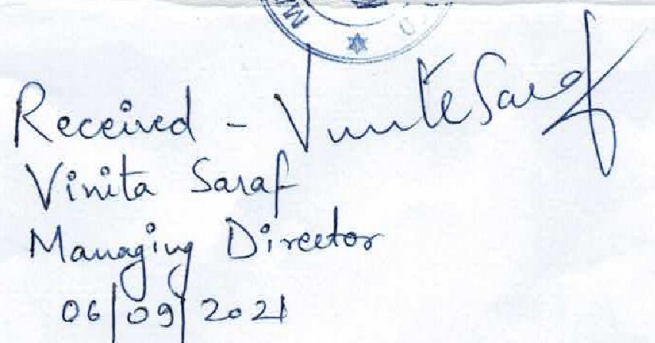 Received - Vinita Saraf
Vinita Saraf
Managing Director
06/09/2021